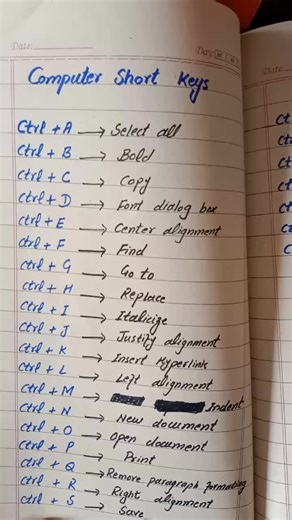 Date:
Date:
Computer Short Keys
Ctrl + A → Select all
Ctrl + B → Bold
Ctrl + C → Copy
Ctrl + D → Font dialog box
Ctrl + E → Center alignment
Ctrl + F → Find
Ctrl + G → Go to
Ctrl + H → Replace
Ctrl + I → Italicize
Ctrl + J → Justify alignment
Ctrl + K → Insert Hyperlink
Ctrl + L → Left alignment
Ctrl + M → Indent
Ctrl + N → New document
Ctrl + O → Open document
Ctrl + P → Print
Ctrl + Q → Remove paragraph formatting
Ctrl + R → Right alignment
Ctrl + S → Save